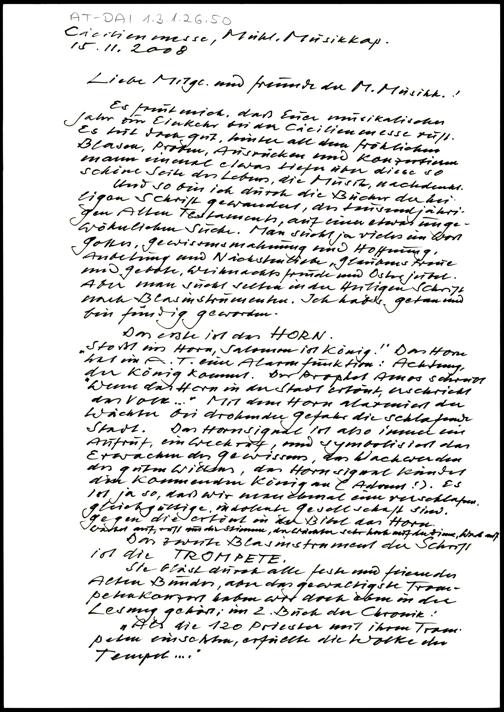 AT-DAI 1.3.1.26.50
Cäcilienmesse, Mühl. Musikkap.
15.11.2008
Liebe Mitgl. und Freunde der M. Musikk.!
Es freut mich, daß Euer musikalisches
Jahr zur Einkehr bei der Cäcilienmesse ruft.
Es tut doch gut, hinter all dem fröhlichen
Blasen, Proben, Ausrücken und Konzertieren
wenn einmal etwas tiefer über diese so
schöne Seite des Lebens, die Musik, nachdenkt.
Und so bin ich durch die Bücher der hei-
ligen Schrift gewandert, des tausendjähri-
gen Alten Testaments, auf einer etwas unge-
wöhnlichen Suche. Man sucht ja vieles im Wort
Gottes, Gewissensmahnung und Hoffnung,
Anbetung und Nächstenliebe, Glaubenstreue
und Gebote, Weihnachtsfreude und Osterjubel.
Aber man sucht selten in der Heiligen Schrift
nach Blasinstrumenten. Ich habs getan und
bin fündig geworden.
Das erste ist das HORN.
"Stoßt ins Horn, Salomon ist König!" Das Horn
hat im A.T. eine Alarmfunktion: Achtung,
der König kommt. Der Prophet Amos schreibt
"Wenn das Horn in der Stadt ertönt, erschrickt
das Volk..." Mit dem Horn alarmiert der
Wächter bei drohender Gefahr die schlafende
Stadt. Das Hornsignal ist also immer ein
Aufruf, ein Weckruf, und symbolisiert das
Erwachen des Gewissens, das Wachwerden
des guten Willens, das Hornsignal kündet
den kommenden König an (Advent!). Es
ist ja so, daß wir manchmal eine verschlafene,
gleichgültige, indolente Gesellschaft sind.
Gegen die ertönt in der Bibel das Horn.
Das zweite Blasinstrument der Schrift
ist die TROMPETE.
Sie bläst durch alle Feste und Feiern des
Alten Bundes, aber das gewaltigste Trom-
petenkonzert haben wir doch eben in der
Lesung gehört; im 2. Buch der Chronik:
"Als die 120 Priester mit ihren Trom-
peten einsetzten, erfüllte die Wolke den
Tempel...."